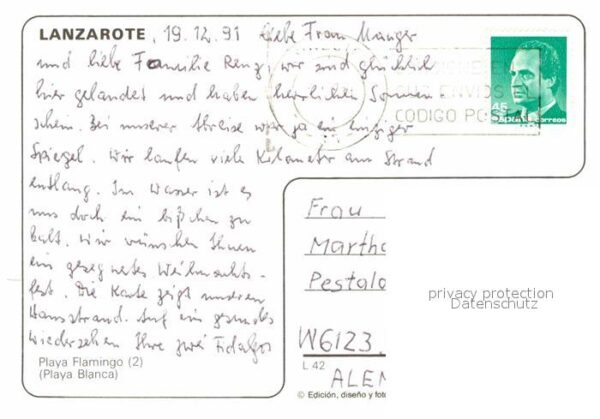 LANZAROTE, 19.12.91 Liebe Frau Manger
und liebe Familie Renz, wir sind glücklich
hier gelandet und haben herrlichen Sonnen-
schein. Bei unserer Abreise war ja ein einziger
Spiegel. Wir laufen viele Kilometer am Strand
entlang. Im Wasser ist es
uns doch ein bißchen zu
kalt. Wir wünschen Ihnen
ein gesegnetes Weihnachts-
fest. Die Karte zeigt unseren
Hausstrand. Auf ein gesundes
Wiedersehen Ihre zwei Fidalgos
Playa Flamingo (2)
(Playa Blanca)
45
España correos
ENVIOS
CODIGO POSTAL
Frau
Martha
Pestalo
privacy protection
Datenschutz
W6123
L 42
ALEM
© Edición, diseño y foto